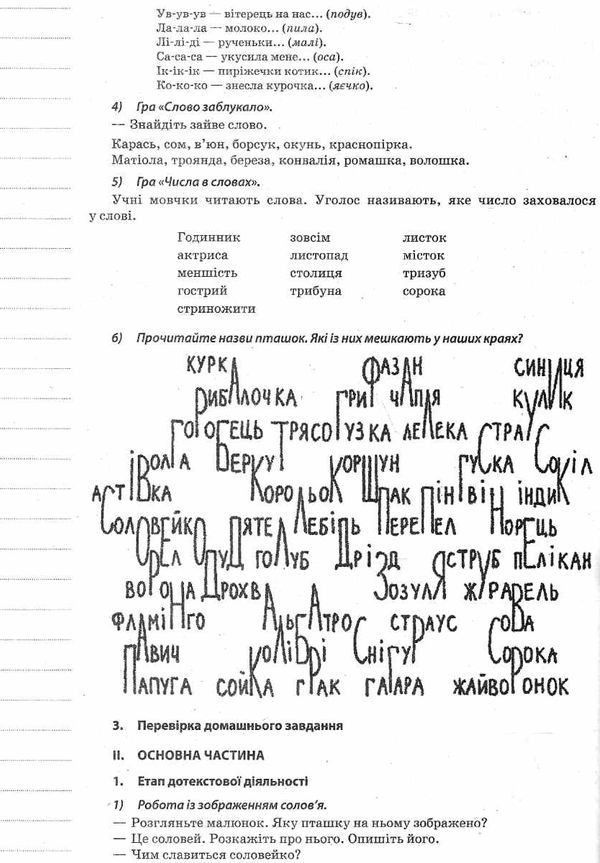 Ув-ув-ув — вітерець на нас... (подув).
Ла-ла-ла — молоко... (пила).
Лі-лі-ді — рученьки... (малі).
Са-са-са — укусила мене... (оса).
Ік-ік-ік — пиріжечки котик... (спік).
Ко-ко-ко — знесла курочка... (яєчко).
4) Гра «Слово заблукало».
— Знайдіть зайве слово.
Карась, сом, в'юн, борсук, окунь, краснопірка.
Матіола, троянда, береза, конвалія, ромашка, волошка.
5) Гра «Числа в словах».
Учні мовчки читають слова. Уголос називають, яке число заховалося
у слові.
Годинник зовсім листок
актриса листопад місток
меншість столиця тризуб
гострий трибуна сорока
стриножити
6) Прочитайте назви пташок. Які із них мешкають у наших краях?
КУРКА ФАЗАН СИНИЦЯ
РИБАЛОЧКА ГРИФ ЧАПЛЯ КУЛИК
ТРЯСОГУЗКА ЛЕЛЕКА СТРАУС
ІВОЛГА БЕРКУТ КОРШУН ГУСКА СОКІЛ
ЛАСТІВКА КОРОЛЬОК ШПАК ПІНГВІН ІНДИК
СОЛОВЕЙКО ДЯТЕЛ ЛЕБІДЬ ПЕРЕПЕЛ НОРЕЦЬ
ОРЕЛ ОДУД ГОЛУБ ДРІЗД ЯСТРУБ ПЕЛІКАН
ВОРОНА ДРОХВА ЗОЗУЛЯ ЖУРАВЕЛЬ
ФЛАМІНГО АЛЬБАТРОС СТРАУС СОВА
ПАВИЧ КОЛІБРІ СНІГУР СОРОКА
ПАПУГА СОЙКА ГРАК ГАГАРА ЖАЙВОРОНОК
3. Перевірка домашнього завдання
ІІ. ОСНОВНА ЧАСТИНА
1. Етап дотекстової діяльності
1) Робота із зображенням солов'я.
— Розгляньте малюнок. Яку пташку на ньому зображено?
— Це соловей. Розкажіть про нього. Опишіть його.
— Чим славиться соловейко?